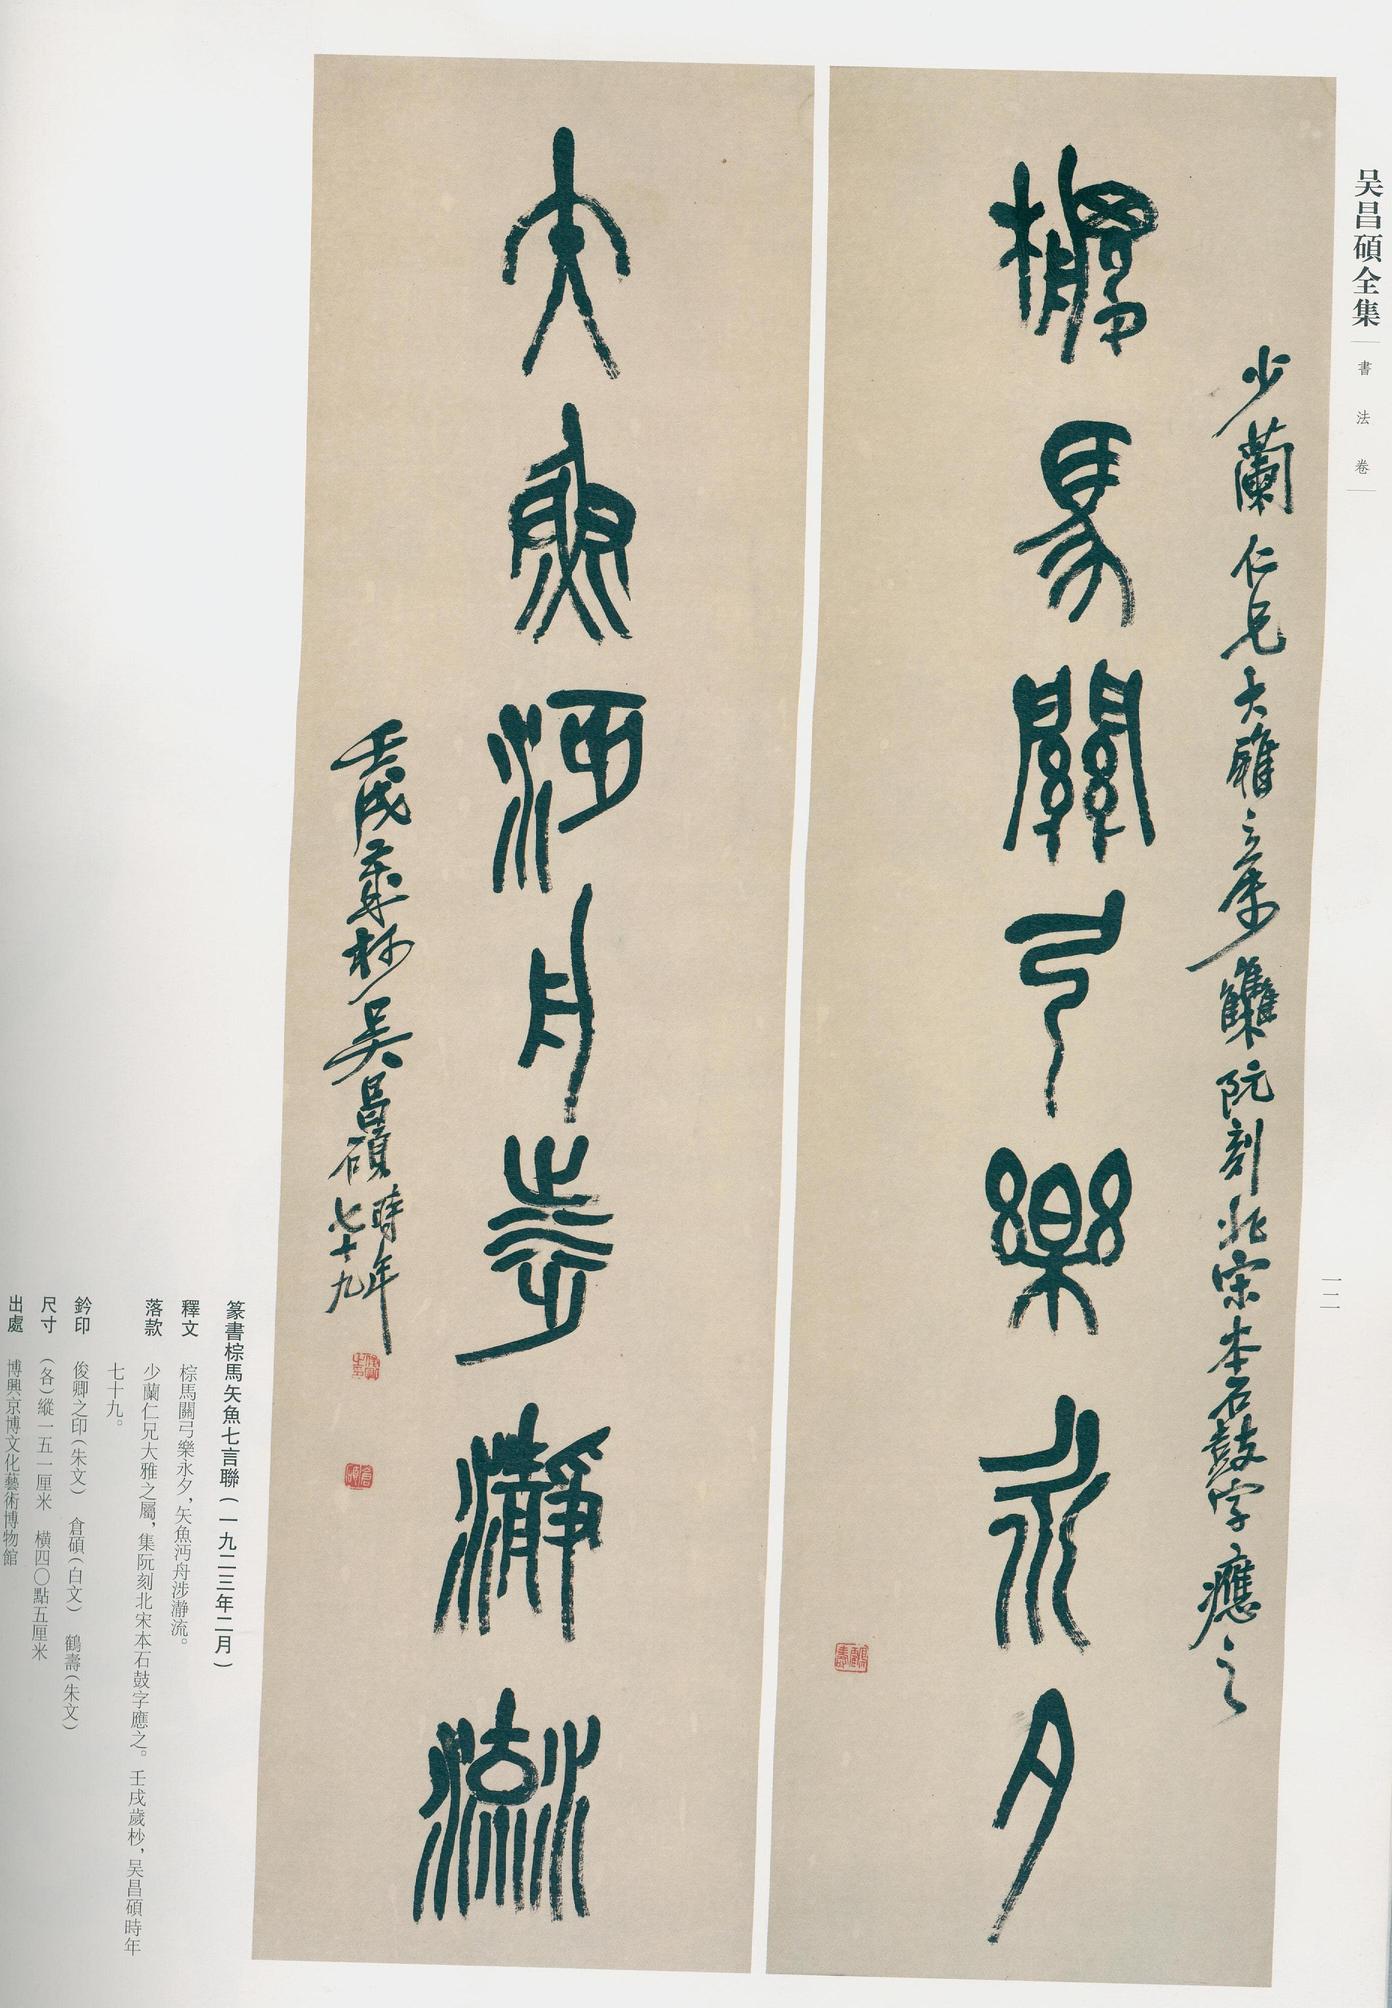 吴昌碩全集
書法卷
一二
少蘭仁兄大雅之屬集阮刻北宋本石鼓字應之
棕馬關弓樂永夕
鶴壽
矢魚沔舟涉瀞流
壬戌歲杪吴昌碩時年
七十九
俊卿之印
倉碩
篆書棕馬矢魚七言聯(一九二三年二月)
釋文 棕馬關弓樂永夕,矢魚沔舟涉瀞流。
落款 少蘭仁兄大雅之屬,集阮刻北宋本石鼓字應之。壬戌歲杪,吴昌碩時年
七十九。
鈐印 俊卿之印(朱文) 倉碩(白文) 鶴壽(朱文)
尺寸 (各)縱一五一厘米 橫四〇點五厘米
出處 博興京博文化藝術博物館